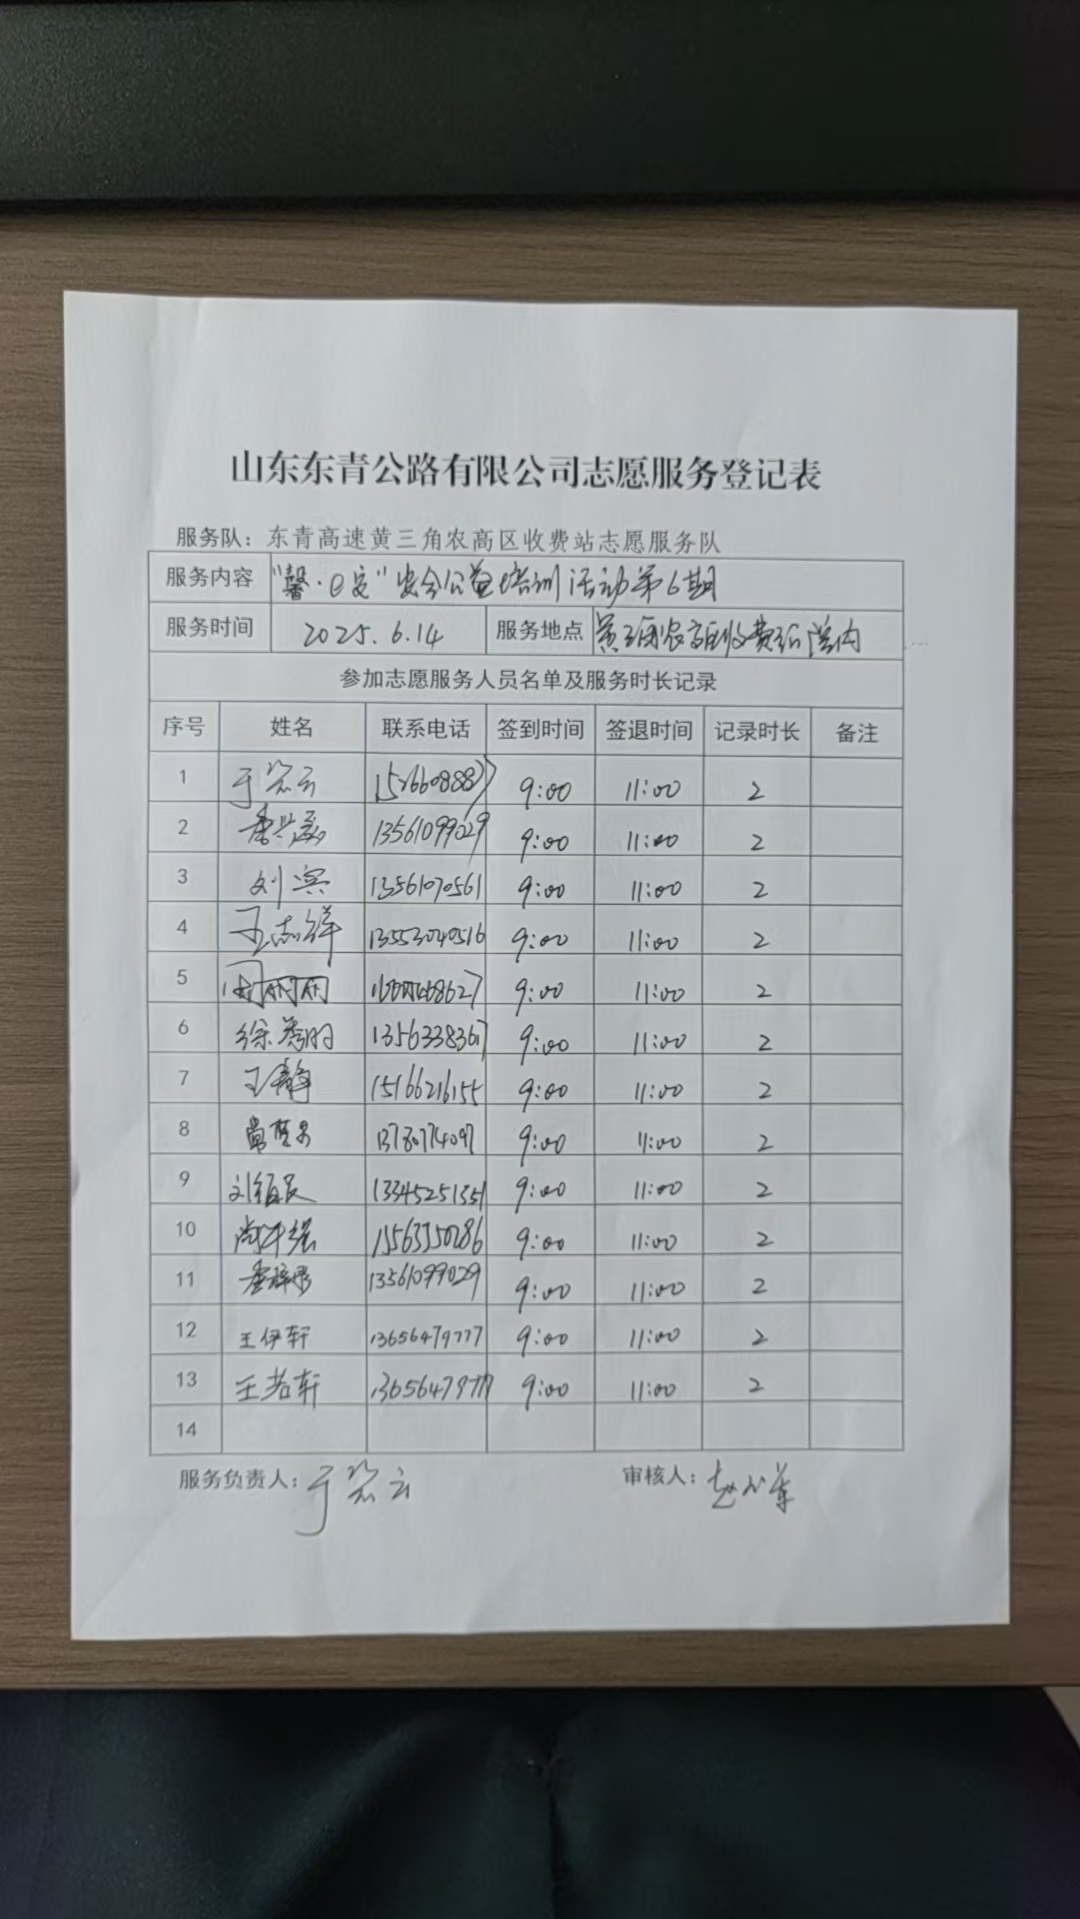 山东东青公路有限公司志愿服务登记表
服务队：东青高速黄三角农高区收费站志愿服务队
服务内容 "馨·e安"安全公益培训活动第6期
服务时间 2025.6.14 服务地点 黄三角农高区收费站院内
参加志愿服务人员名单及服务时长记录
序号 姓名 联系电话 签到时间 签退时间 记录时长 备注
1 于 云 9:00 11:00 2
2 13561099029 9:00 11:00 2
3 刘滨 13561070561 9:00 11:00 2
4 王志祥 13553040516 9:00 11:00 2
5 周丽丽 9:00 11:00 2
6 徐秀明 9:00 11:00 2
7 王静 15166216155 9:00 11:00 2
8 13780774097 9:00 11:00 2
9 13345251351 9:00 11:00 2
10 15563350286 9:00 11:00 2
11 13561099029 9:00 11:00 2
12 王伊轩 13656479777 9:00 11:00 2
13 王若轩 9:00 11:00 2
14
服务负责人：于 云 审核人：赵